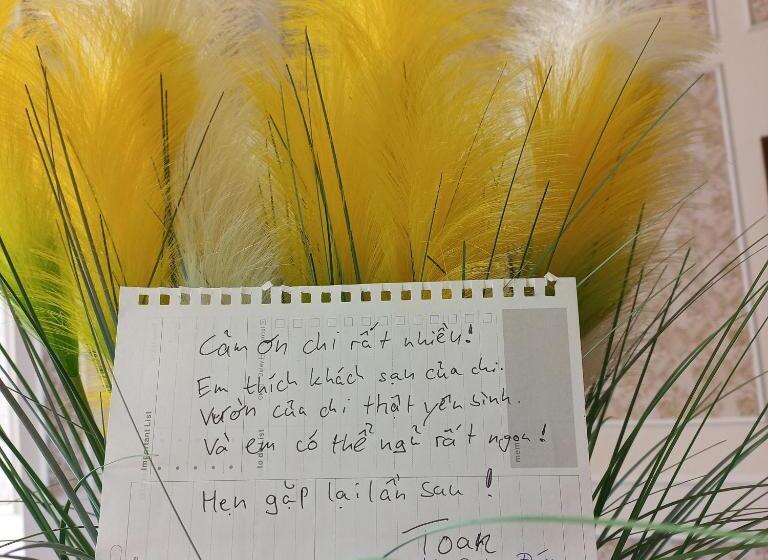 Cảm ơn chị rất nhiều!
Em thích khách sạn của chị.
Vườn của chị thật yên bình.
Và em có thể ngủ rất ngon!
Hẹn gặp lại lần sau!
Important List
to do list
memo